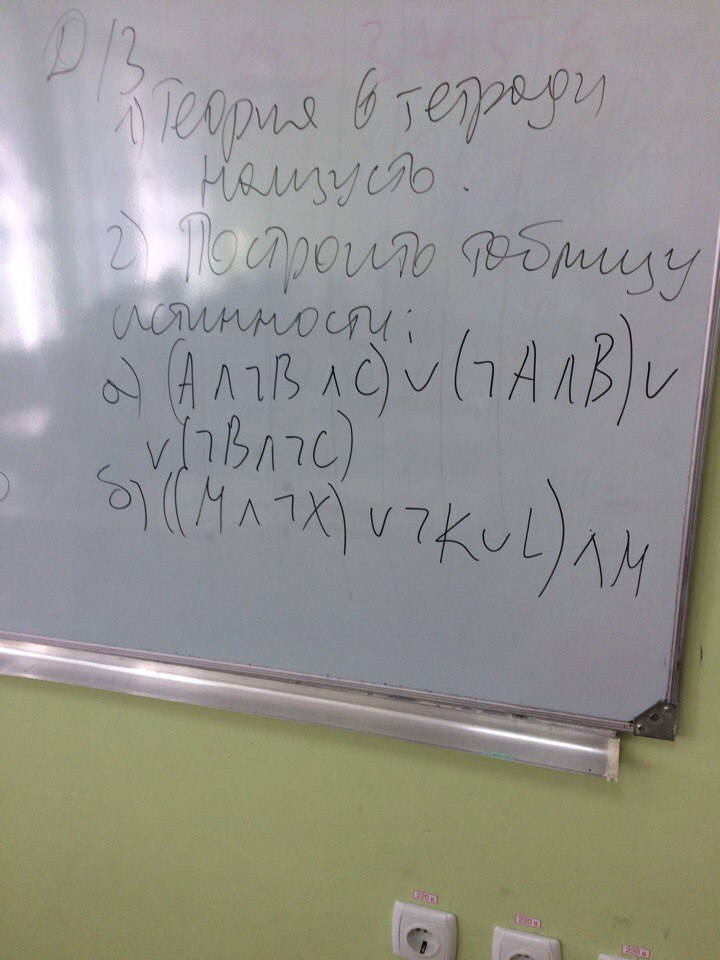 1 2 3 4 5 6
Д/З
1) Теория в тетради
наизусть.
2) Построить таблицу
истинности:
а) (A∧¬B∧C)∨(¬A∧B)∨
∨(¬B∧¬C)
б) ((M∧¬X)∨¬K∨L)∧M
220 в
220 в
220 в